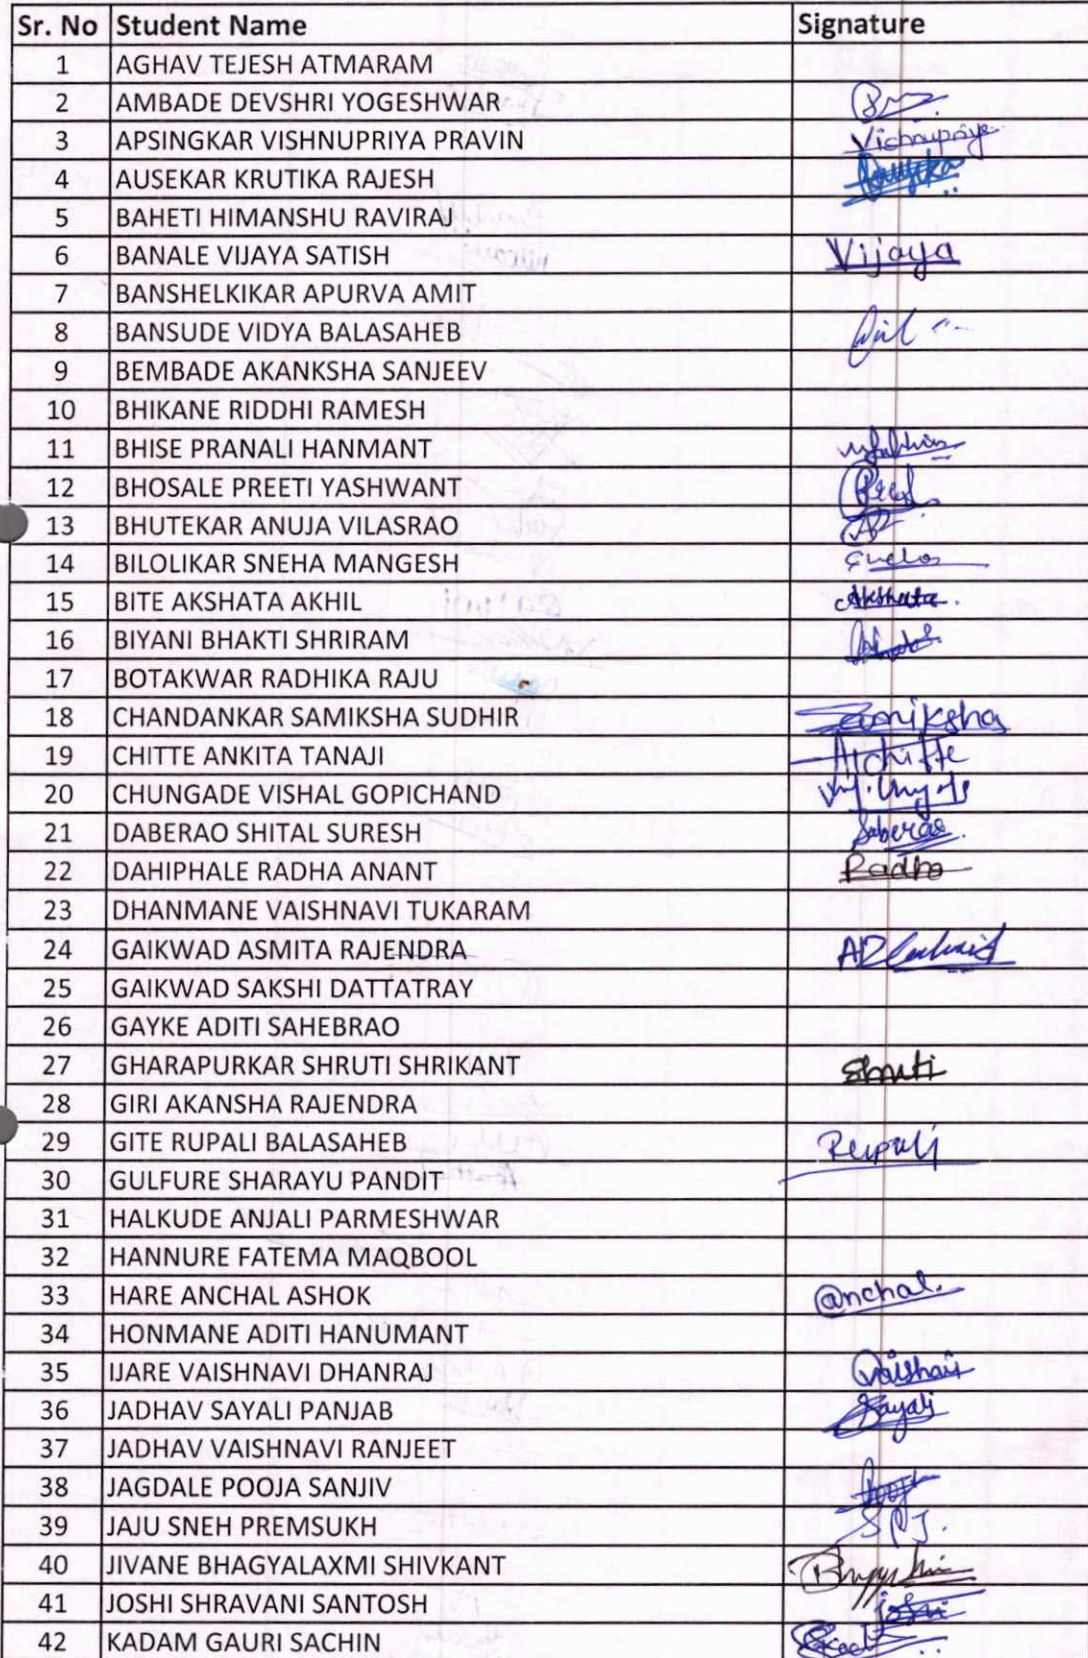 Sr. No Student Name Signature
1 AGHAV TEJESH ATMARAM
2 AMBADE DEVSHRI YOGESHWAR
3 APSINGKAR VISHNUPRIYA PRAVIN Vishnupriya
4 AUSEKAR KRUTIKA RAJESH
5 BAHETI HIMANSHU RAVIRAJ
6 BANALE VIJAYA SATISH Vijaya
7 BANSHELKIKAR APURVA AMIT
8 BANSUDE VIDYA BALASAHEB
9 BEMBADE AKANKSHA SANJEEV
10 BHIKANE RIDDHI RAMESH
11 BHISE PRANALI HANMANT
12 BHOSALE PREETI YASHWANT
13 BHUTEKAR ANUJA VILASRAO
14 BILOLIKAR SNEHA MANGESH
15 BITE AKSHATA AKHIL Akshata.
16 BIYANI BHAKTI SHRIRAM
17 BOTAKWAR RADHIKA RAJU
18 CHANDANKAR SAMIKSHA SUDHIR Samiksha
19 CHITTE ANKITA TANAJI AChitte
20 CHUNGADE VISHAL GOPICHAND
21 DABERAO SHITAL SURESH Saberao.
22 DAHIPHALE RADHA ANANT Radha
23 DHANMANE VAISHNAVI TUKARAM
24 GAIKWAD ASMITA RAJENDRA
25 GAIKWAD SAKSHI DATTATRAY
26 GAYKE ADITI SAHEBRAO
27 GHARAPURKAR SHRUTI SHRIKANT Shruti
28 GIRI AKANSHA RAJENDRA
29 GITE RUPALI BALASAHEB Rupali
30 GULFURE SHARAYU PANDIT
31 HALKUDE ANJALI PARMESHWAR
32 HANNURE FATEMA MAQBOOL
33 HARE ANCHAL ASHOK @nchal.
34 HONMANE ADITI HANUMANT
35 IJARE VAISHNAVI DHANRAJ
36 JADHAV SAYALI PANJAB Sayali
37 JADHAV VAISHNAVI RANJEET
38 JAGDALE POOJA SANJIV
39 JAJU SNEH PREMSUKH SPJ.
40 JIVANE BHAGYALAXMI SHIVKANT
41 JOSHI SHRAVANI SANTOSH joshi
42 KADAM GAURI SACHIN